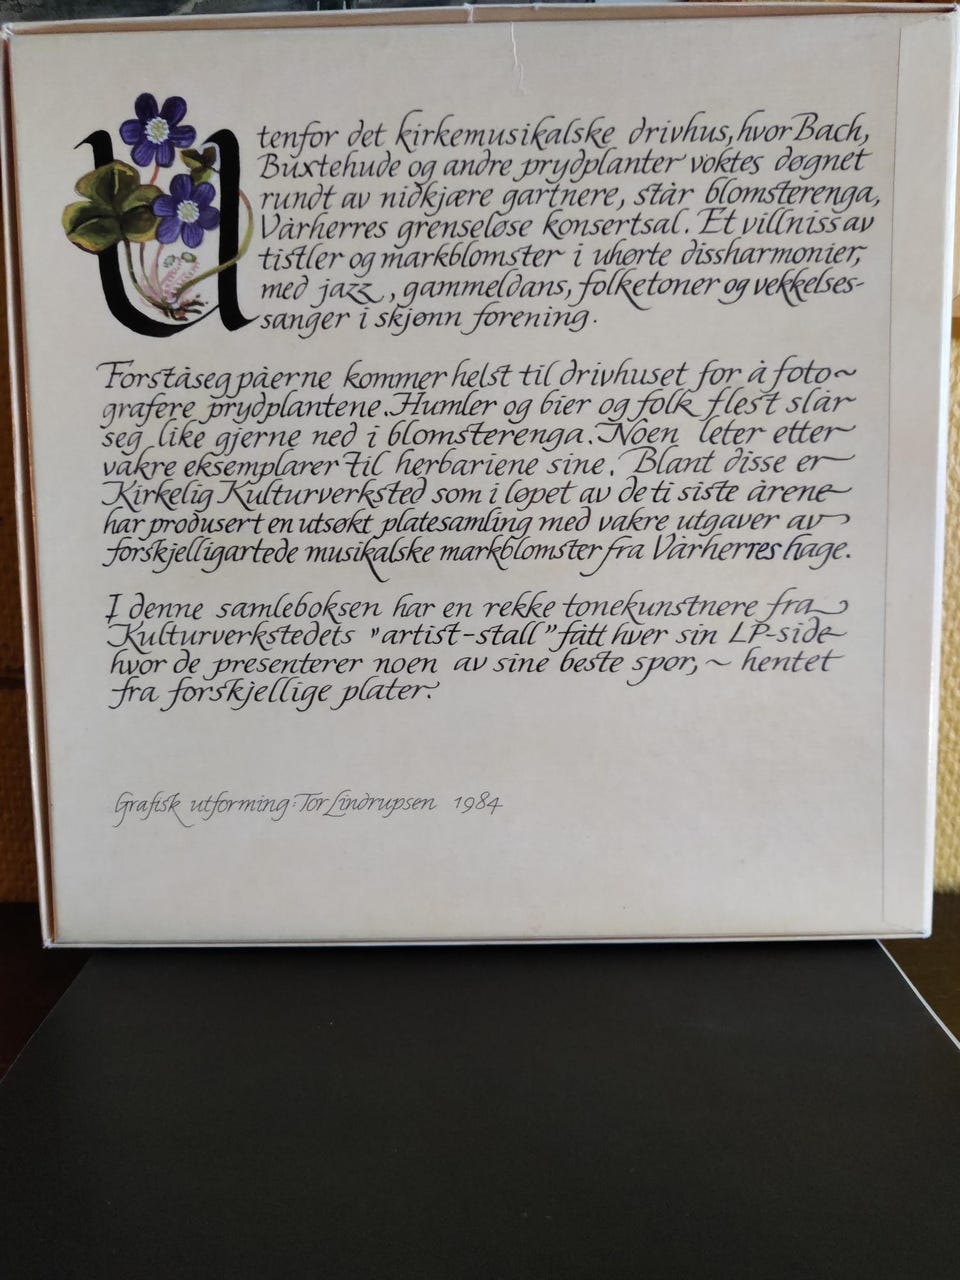 Utenfor det kirkemusikalske drivhus, hvor Bach,
Buxtehude og andre prydplanter voktes døgnet
rundt av nidkjære gartnere, står blomsterenga,
Vårherres grenseløse konsertsal. Et villniss av
tistler og markblomster i uhørte dissharmonier,
med jazz, gammeldans, folketoner og vekkelses-
sanger i skjønn forening.
Forståsegpåerne kommer helst til drivhuset for å foto~
grafere prydplantene. Humler og bier og folk flest slår
seg like gjerne ned i blomsterenga. Noen leter etter
vakre eksemplarer til herbariene sine. Blant disse er
Kirkelig Kulturverksted som i løpet av de ti siste årene
har produsert en utsøkt platesamling med vakre utgaver av
forskjelligartede musikalske markblomster fra Vårherres hage.
I denne samleboksen har en rekke tonekunstnere fra
Kulturverkstedets "artist-stall" fått hver sin LP-side
hvor de presenterer noen av sine beste spor, ~ hentet
fra forskjellige plater.
Grafisk utforming: Tor Lindrupsen 1984